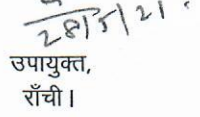 28/5/21
उपायुक्त,
राँची।